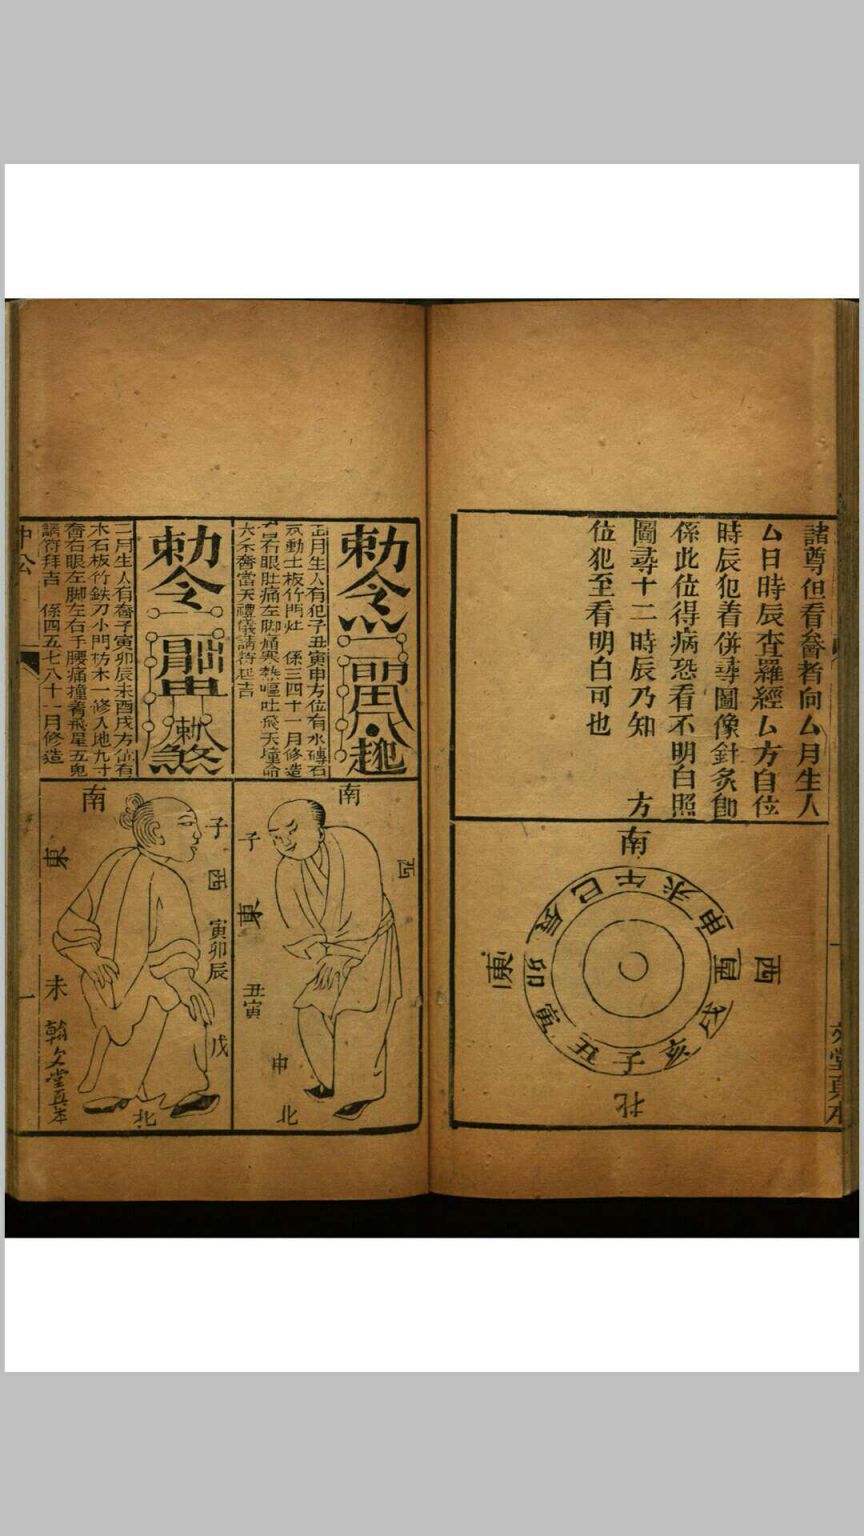 諸尊但看𠷣者向厶月生人
厶日時辰查羅經厶方自位
時辰犯着併尋圖像針炙卽
係此位得病恐看不明白照
圖尋十二時辰乃知 方
位犯至看明白可也
南
巳 午 未
辰 申
東 卯 酉 西
寅 戌
丑 子 亥
北
堂真本
勅令
正月生人有犯子丑寅申方位有水磚石
動土板竹門灶 係三四十一月修造
石眼肚痛左脚痛寒熱嘔吐飛天撞命
當天禮儀請符起吉
南
子
西
東
丑寅
申
北
勅令
煞
二月生人有𠷣子寅卯辰未酉戌方位有
木石板竹鉄刀小門枋木一修入地九寸
右眼左脚左右手腰痛撞着飛星五鬼
請符拜吉 係四五七八十一月修造
南
子
酉
東
寅卯辰
未
戌
北
一
翰文堂真本